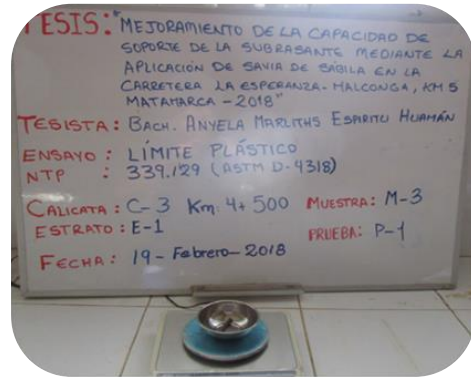 TESIS: "MEJORAMIENTO DE LA CAPACIDAD DE
SOPORTE DE LA SUBRASANTE MEDIANTE LA
APLICACIÓN DE SAVIA DE SABILA EN LA
CARRETERA LA ESPERANZA- MALCONGA, KM 5
MATAMARCA - 2018"
TESISTA: BACH. ANYELA MARLITHS ESPIRITU HUAMÁN
ENSAYO: LÍMITE PLÁSTICO
NTP : 339.129 (ASTM D-4318)
CALICATA: C-3 Km: 4+500 MUESTRA: M-3
ESTRATO: E-1 PRUEBA: P-1
FECHA: 19 - Febrero - 2018